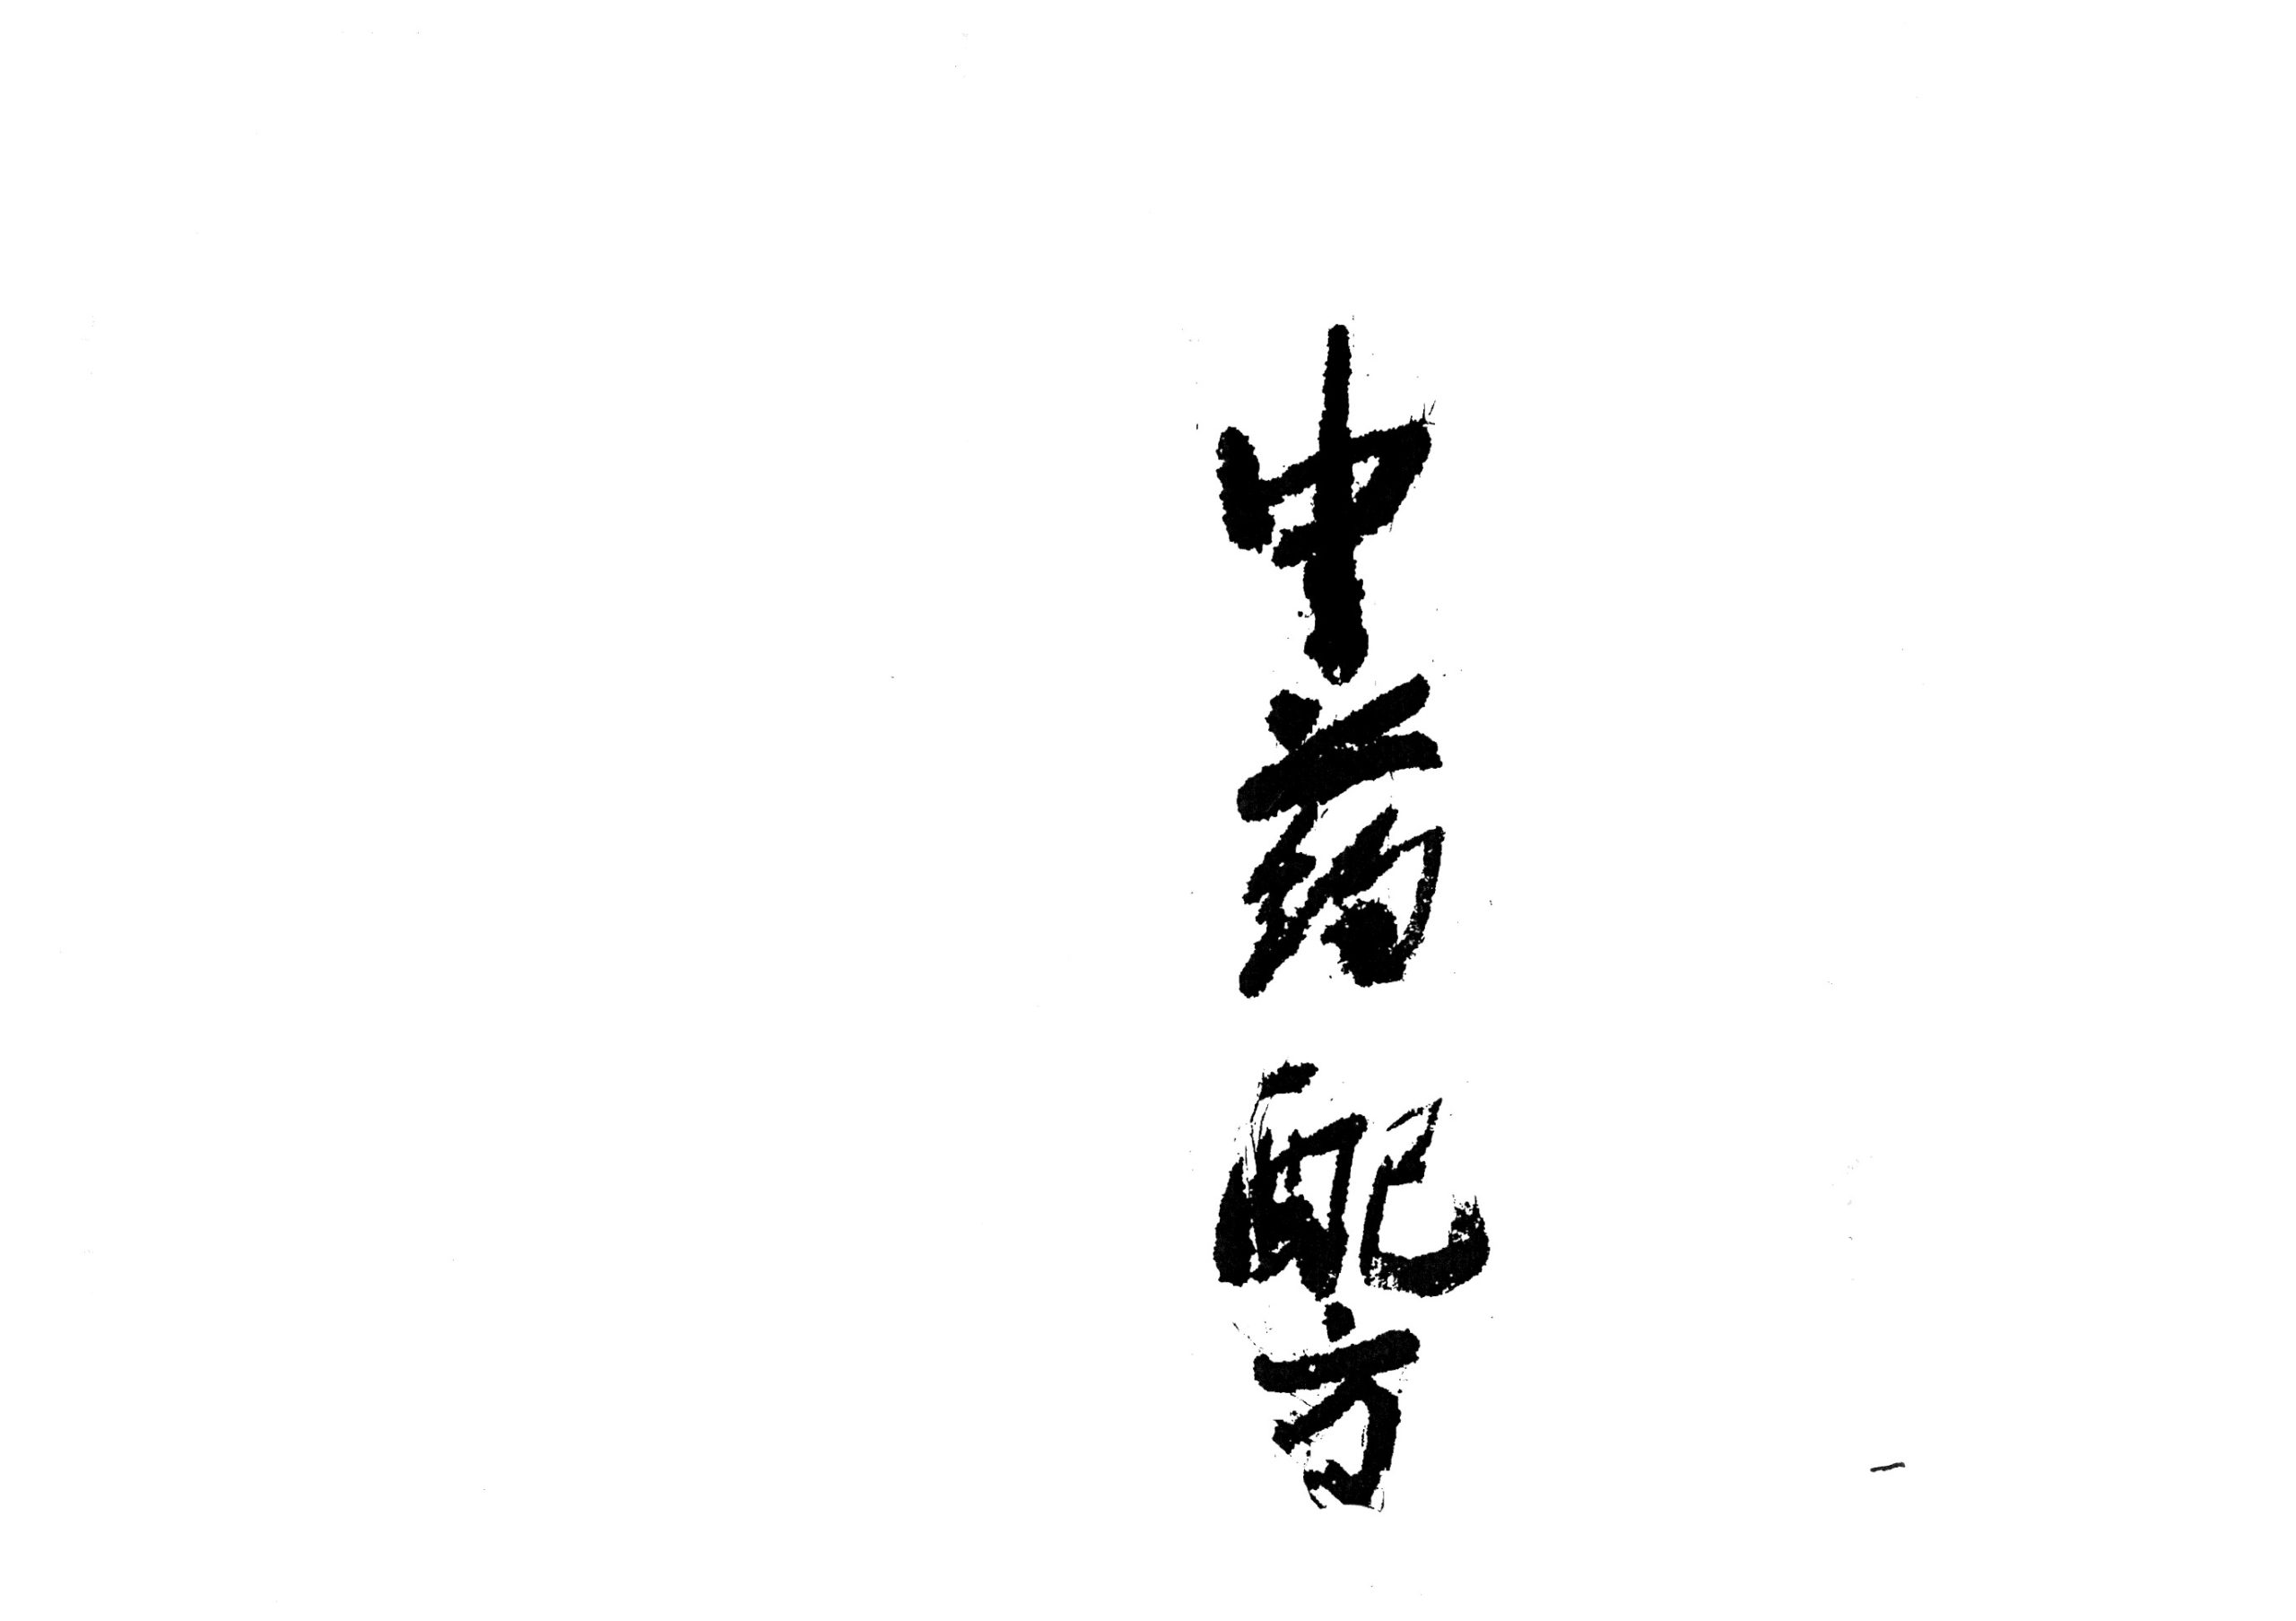 中药配方
一